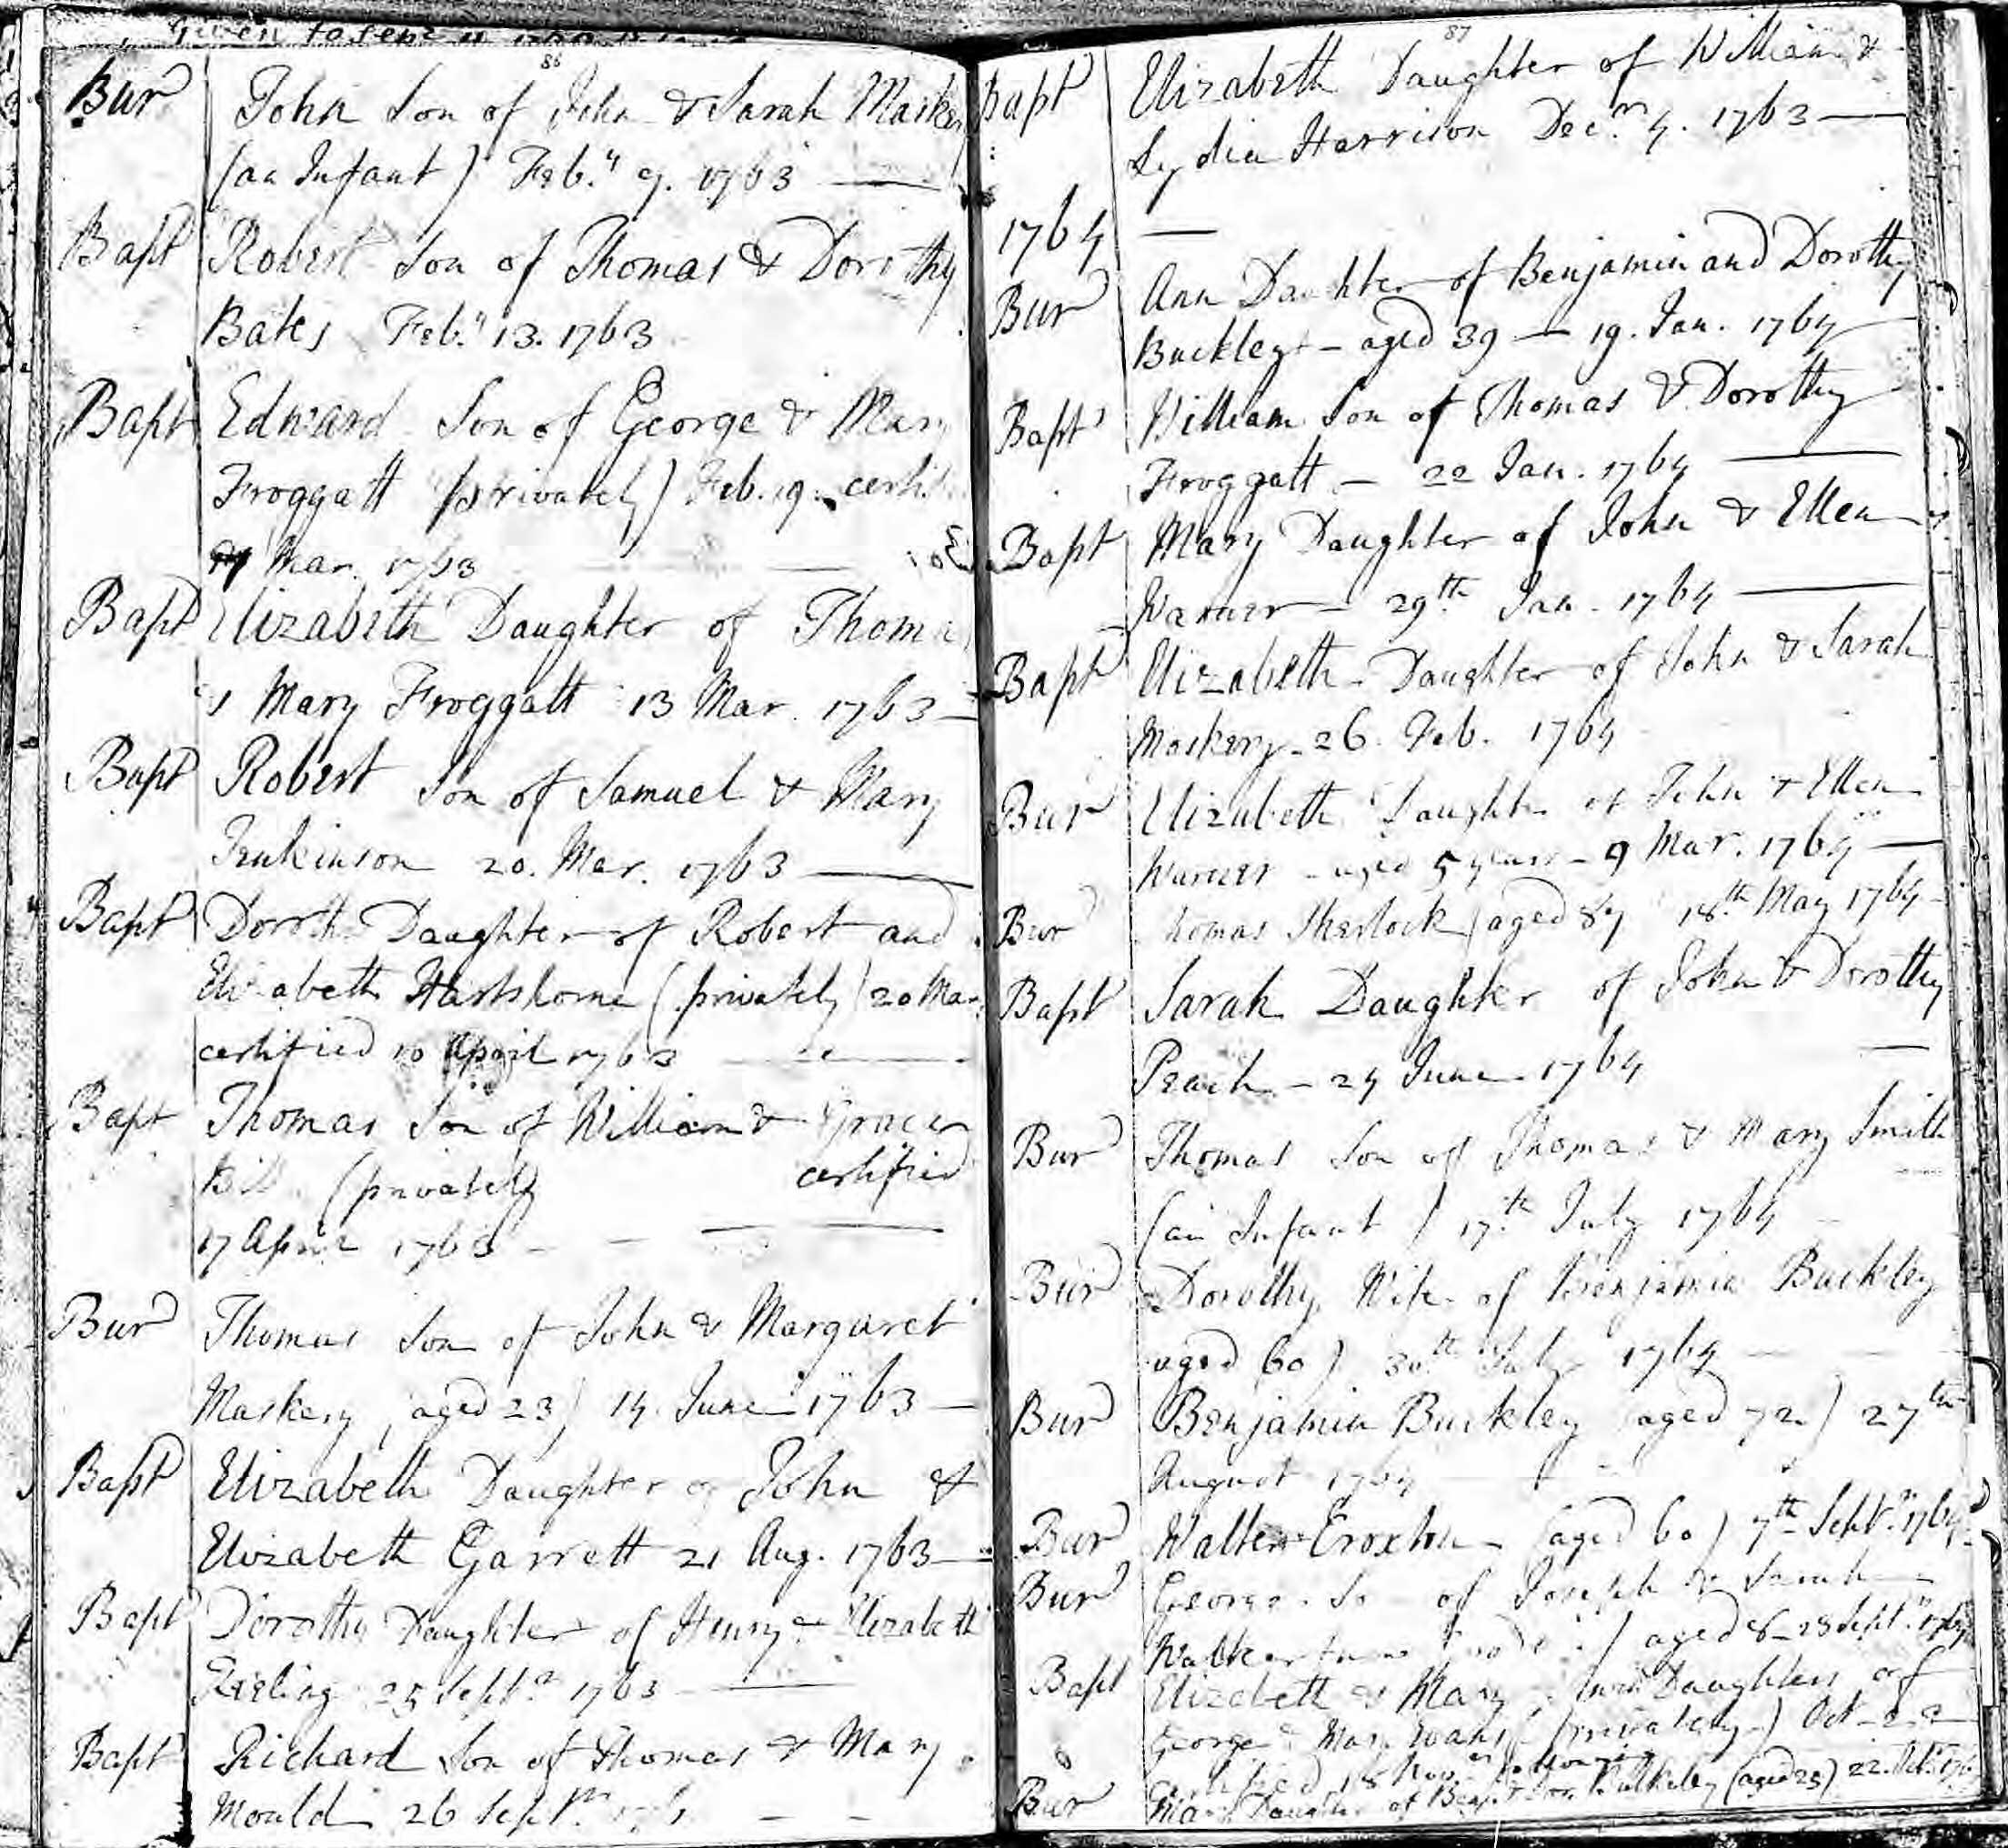 86
Bur John Son of John & Sarah Maskery
(an Infant) Feb.y 9. 1763
Bapt Robert Son of Thomas & Dorothy
Bates Feb.y 13. 1763
Bapt Edward Son of George & Mary
Froggatt (privately) Feb. 19.
Mar. 1763
Bapt Elizabeth Daughter of Thomas
& Mary Froggatt 13 Mar. 1763
Bapt Robert Son of Samuel & Mary
Jenkinson 20. Mar. 1763
Bapt Doroth Daughter of Robert and
Elizabeth Hartshorne (privately) 20 Mar
certified 10 April 1763
Bapt Thomas Son of William & Grace
(privately certified
17 April 1763
Bur Thomas Son of John & Margaret
Maskery, aged 23) 14. June 1763
Bapt Elizabeth Daughter of John &
Elizabeth Garrett 21 Aug. 1763
Bapt Dorothy Daughter of Henry & Elizabeth
25 Sept.r 1763
Bapt Richard Son of Thomas & Mary
Mould 26 Sept.r
87
Bapt Elizabeth Daughter of William &
Lydia Harrison Dec.r 4. 1763
1764
Bur Ann Daughter of Benjamin and Dorothy
Buckley - aged 39 - 19. Jan. 1764
Bapt William Son of Thomas & Dorothy
Froggatt - 22 Jan. 1764
Bapt Mary Daughter of John & Ellen
Warner - 29th Jan. 1764
Bapt Elizabeth Daughter of John & Sarah
Maskery - 26. Feb. 1764
Bur Elizabeth Daughter of John & Ellen
Warner - aged 5 years - 9 Mar. 1764
Bur Thomas Sherlock (aged 84 18th May 1764
Bapt Sarah Daughter of John & Dorothy
Peach - 24 June 1764
Bur Thomas Son of Thomas & Mary Smith
(an Infant) 17th July 1764
Bur Dorothy Wife of Benjamin Buckley
aged 60) 30th July 1764
Bur Benjamin Buckley aged 72) 27th
August 1764
Bur Walter Croxton (aged 60) 7th Sept.r 1764
Bur George So of Joseph & Sarah
Walker aged 8 - 23 Sept.r 1764
Bapt Elizabeth & Mary twin Daughters of
George & Mary Evans (privately) Oct
certified 18 Nov.er following
Bur Mary Daughter of Benj. & Dor. Bulkeley (aged 25) 22. Oct.r